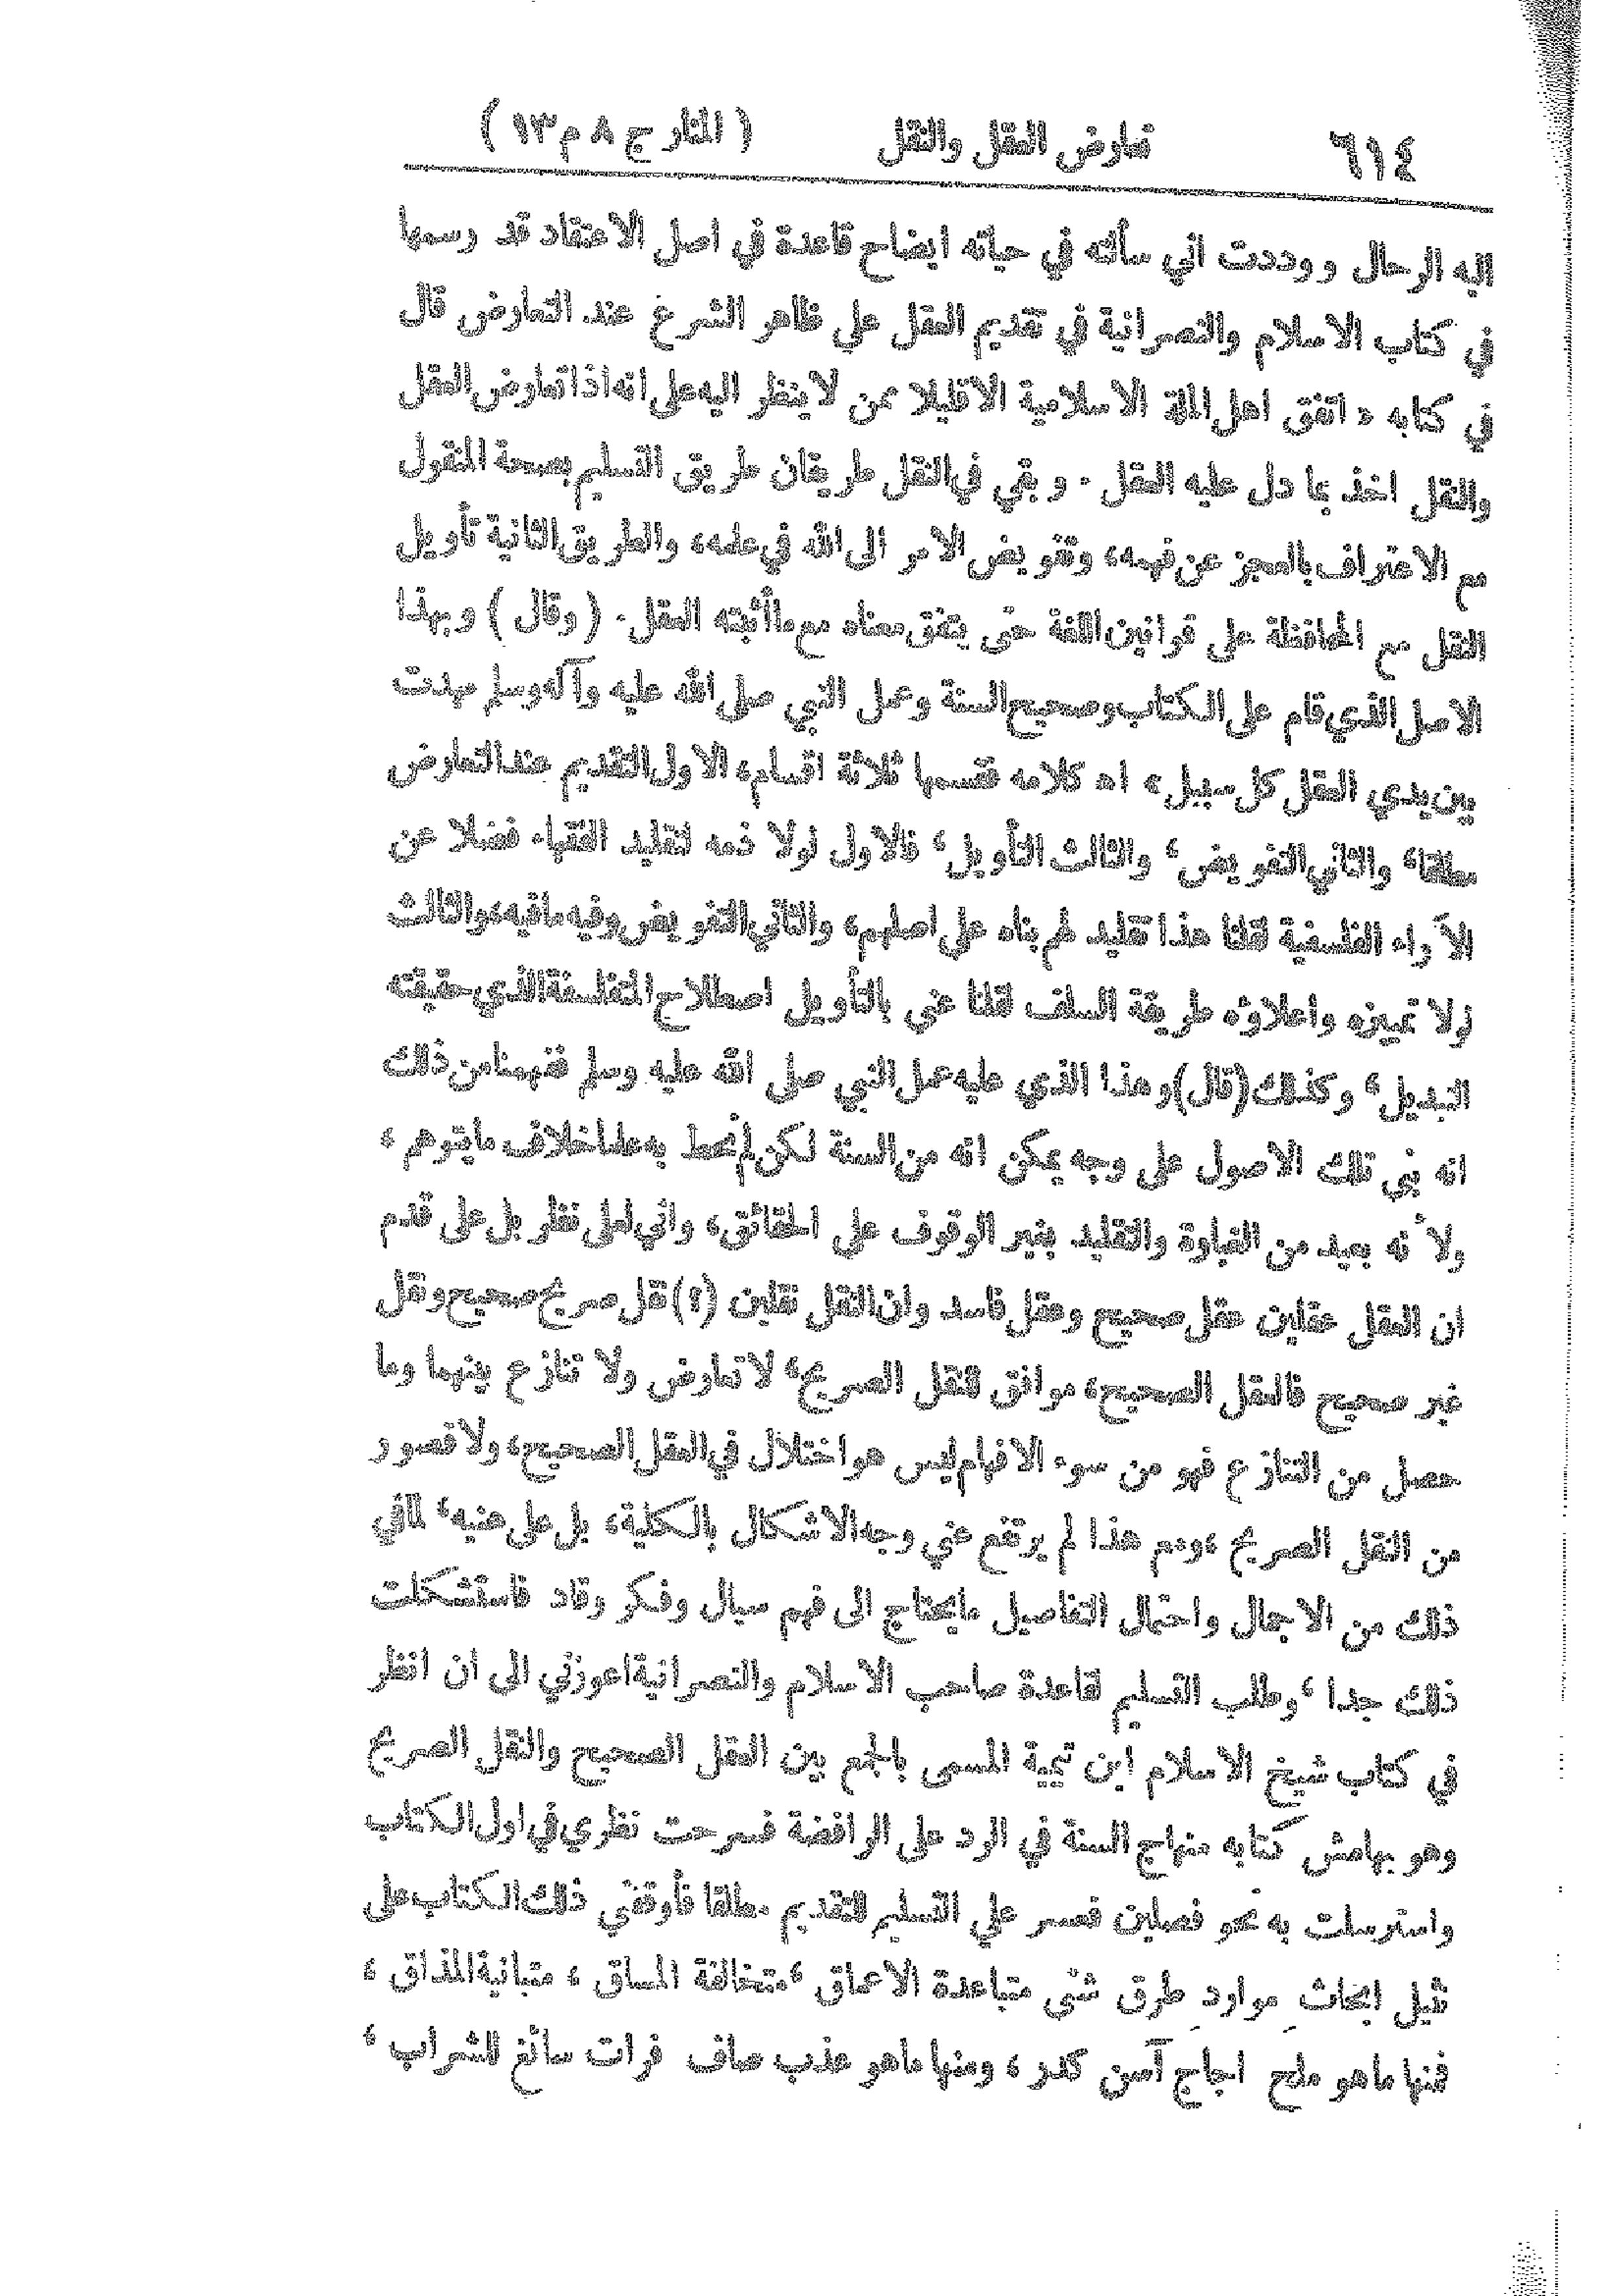 ٦١٤ تعارض العقل والنقل (المنار ج ٨ م ١٣)
اليه الرحال ووددت اني سألته في حياته ايضاح قاعدة في اصل الاعتقاد قد رسمها
في كتاب الاسلام والنصرانية في تقديم العقل على ظاهر الشرع عند التعارض قال
في كتابه « اتفق اهل الملة الاسلامية الا قليلا ممن لا ينظر اليه على انه اذا تعارض العقل
والنقل اخذ بما دل عليه العقل . وبقي في النقل طريقان طريق التسليم بصحة المنقول
مع الاعتراف بالعجز عن فهمه، وتفويض الامر الى الله في علمه، والطريق الثانية تأويل
النقل مع المحافظة على قوانين اللغة حتى يتفق معناه مع ما أثبته العقل. (وقال) وبهذا
الاصل الذي قام على الكتاب وصحيح السنة وعمل النبي صلى الله عليه وآله وسلم مهدت
بين يدي العقل كل سبيل » اه كلامه فقسمها ثلاثة اقسام، الاول التقديم عند التعارض
مطلقا، والثاني التفويض، والثالث التأويل، فالاول لولا ذمه لتقليد الفقهاء فضلا عن
الآراء الفلسفية لقلنا هذا تقليد لهم بناه على اصلهم، والثاني التفويض وفيه ما فيه، والثالث
لولا تميزه واعلاؤه طريقة السلف لقلنا عني بالتأويل اصطلاح المتفلسفة الذي حقيقته
التبديل، وكذلك (قال) وهذا الذي عليه عمل النبي صلى الله عليه وسلم ففهمنا من ذلك
انه بني تلك الاصول على وجه يمكن انه من السنة لكن لم نحط به علما خلاف ما يتوهم ،
ولأنه بعيد من الغباوة والتقليد بغير الوقوف على الحقائق، واني لعلى نظر بل على قدم
ان العقل عقلين عقل صحيح وعقل فاسد وان النقل نقلين (؟) نقل صريح صحيح ونقل
غير صحيح فالعقل الصحيح، موافق للنقل الصريح، لا تعارض ولا تنازع بينهما وما
حصل من التنازع فهو من سوء الافهام ليس هو اختلال في العقل الصحيح، ولا قصور
من النقل الصريح ، ومع هذا لم يرتفع عني وجه الاشكال بالكلية، بل على عنيه، لما في
ذلك من الاجمال واحتمال التفاصيل ما يحتاج الى فهم سيال وفكر وقاد فاستشكلت
ذلك جدا ، وطلب التسليم لقاعدة صاحب الاسلام والنصرانية اعوزني الى ان انظر
في كتاب شيخ الاسلام ابن تيمية المسمى بالجمع بين العقل الصحيح والنقل الصريح
وهو بهامش كتابه منهاج السنة في الرد على الرافضة فسرحت نظري في اول الكتاب
واسترسلت به نحو فصلين فعسر علي التسليم للتقديم مطلقا فأوقفني ذلك الكتاب على
ابحاث موارد طرق شتى متباعدة الاعماق ، متخالفة المساق ، متباينة المذاق ،
فمنها ما هو ملح اجاج آسن كدر ، ومنها ما هو عذب صاف فرات سائغ للشراب ،